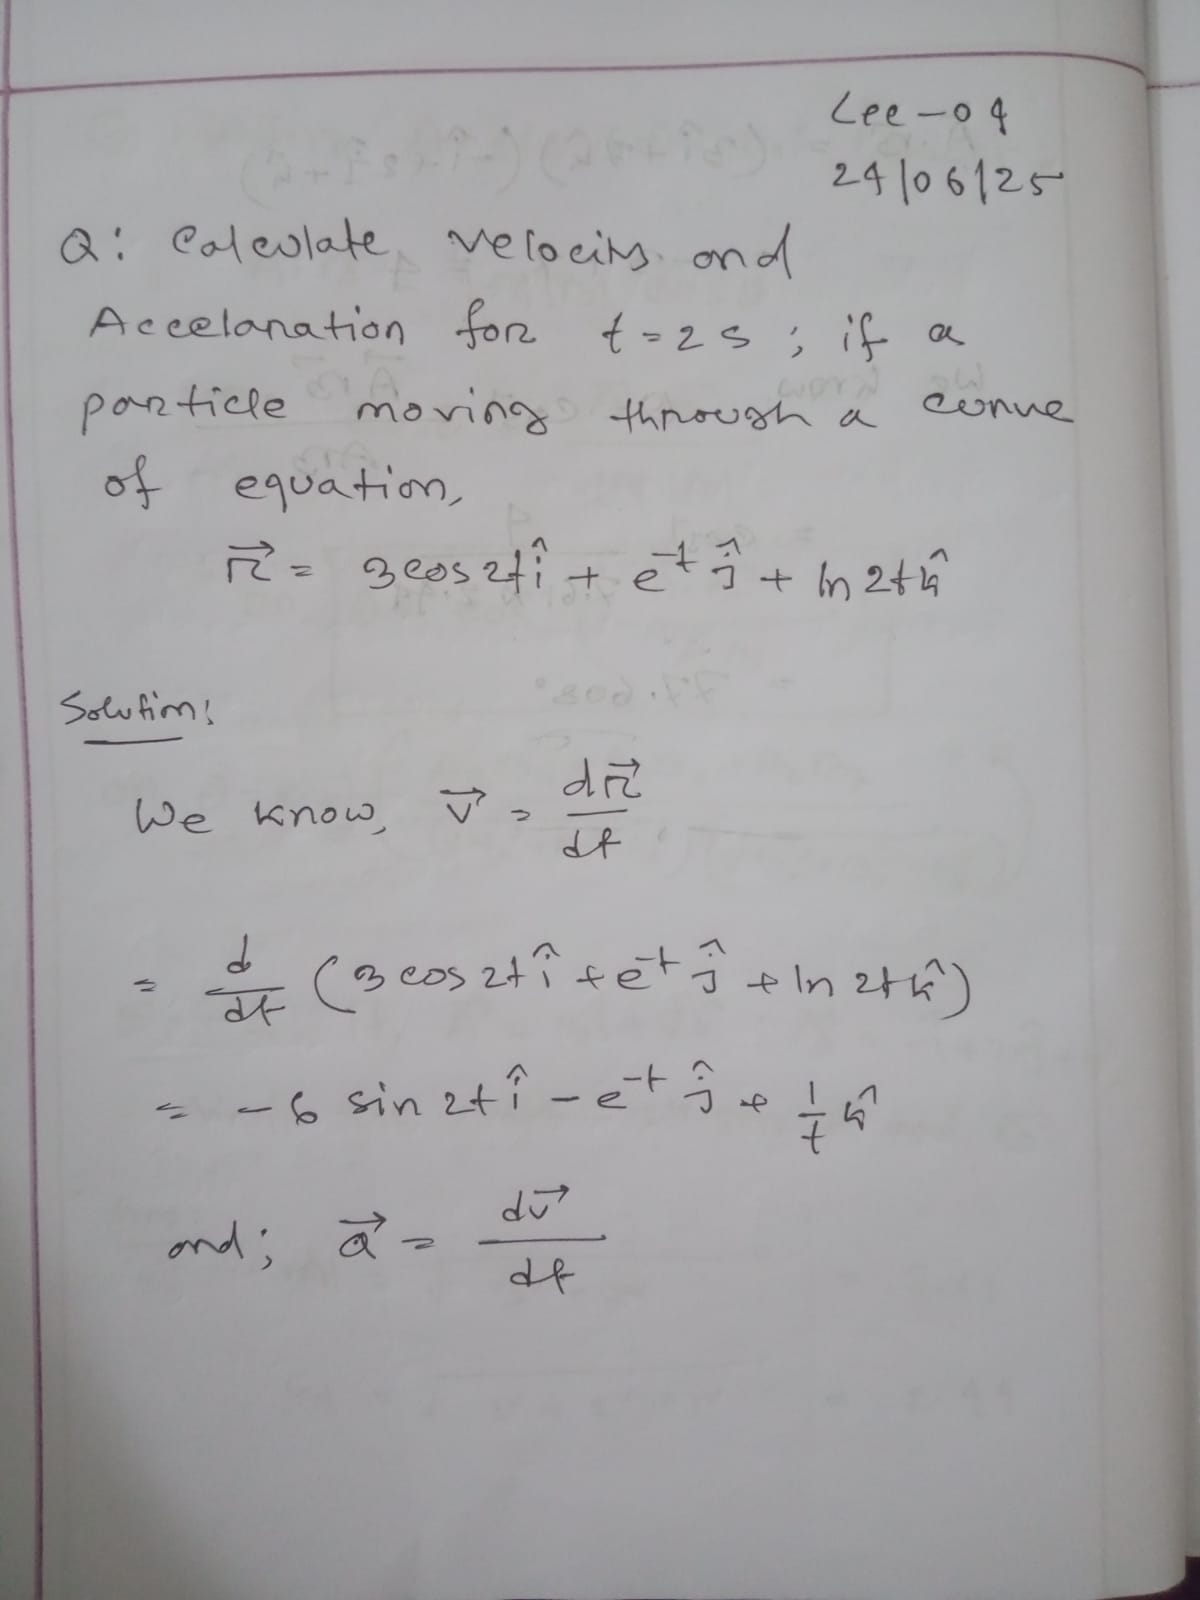 Lec-04
24/06/25
Q: Calculate velocity and
Accelaration for t=2s ; if a
particle moving through a curve
of equation,
r⃗ = 3cos2t î + e^-t ĵ + ln2t k̂
Solution:
We know, v⃗ = dr⃗/dt
= d/dt (3cos2t î + e^-t ĵ + ln 2t k̂)
= -6 sin2t î - e^-t ĵ + 1/t k̂
and; a⃗ = dv⃗/dt